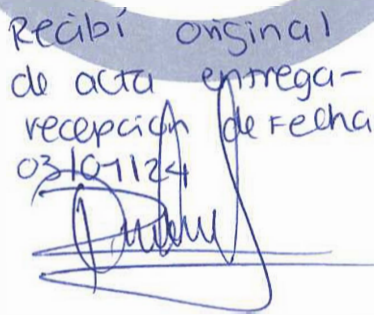 Recibí original
de acta entrega-
recepción de Fecha
03/01/24